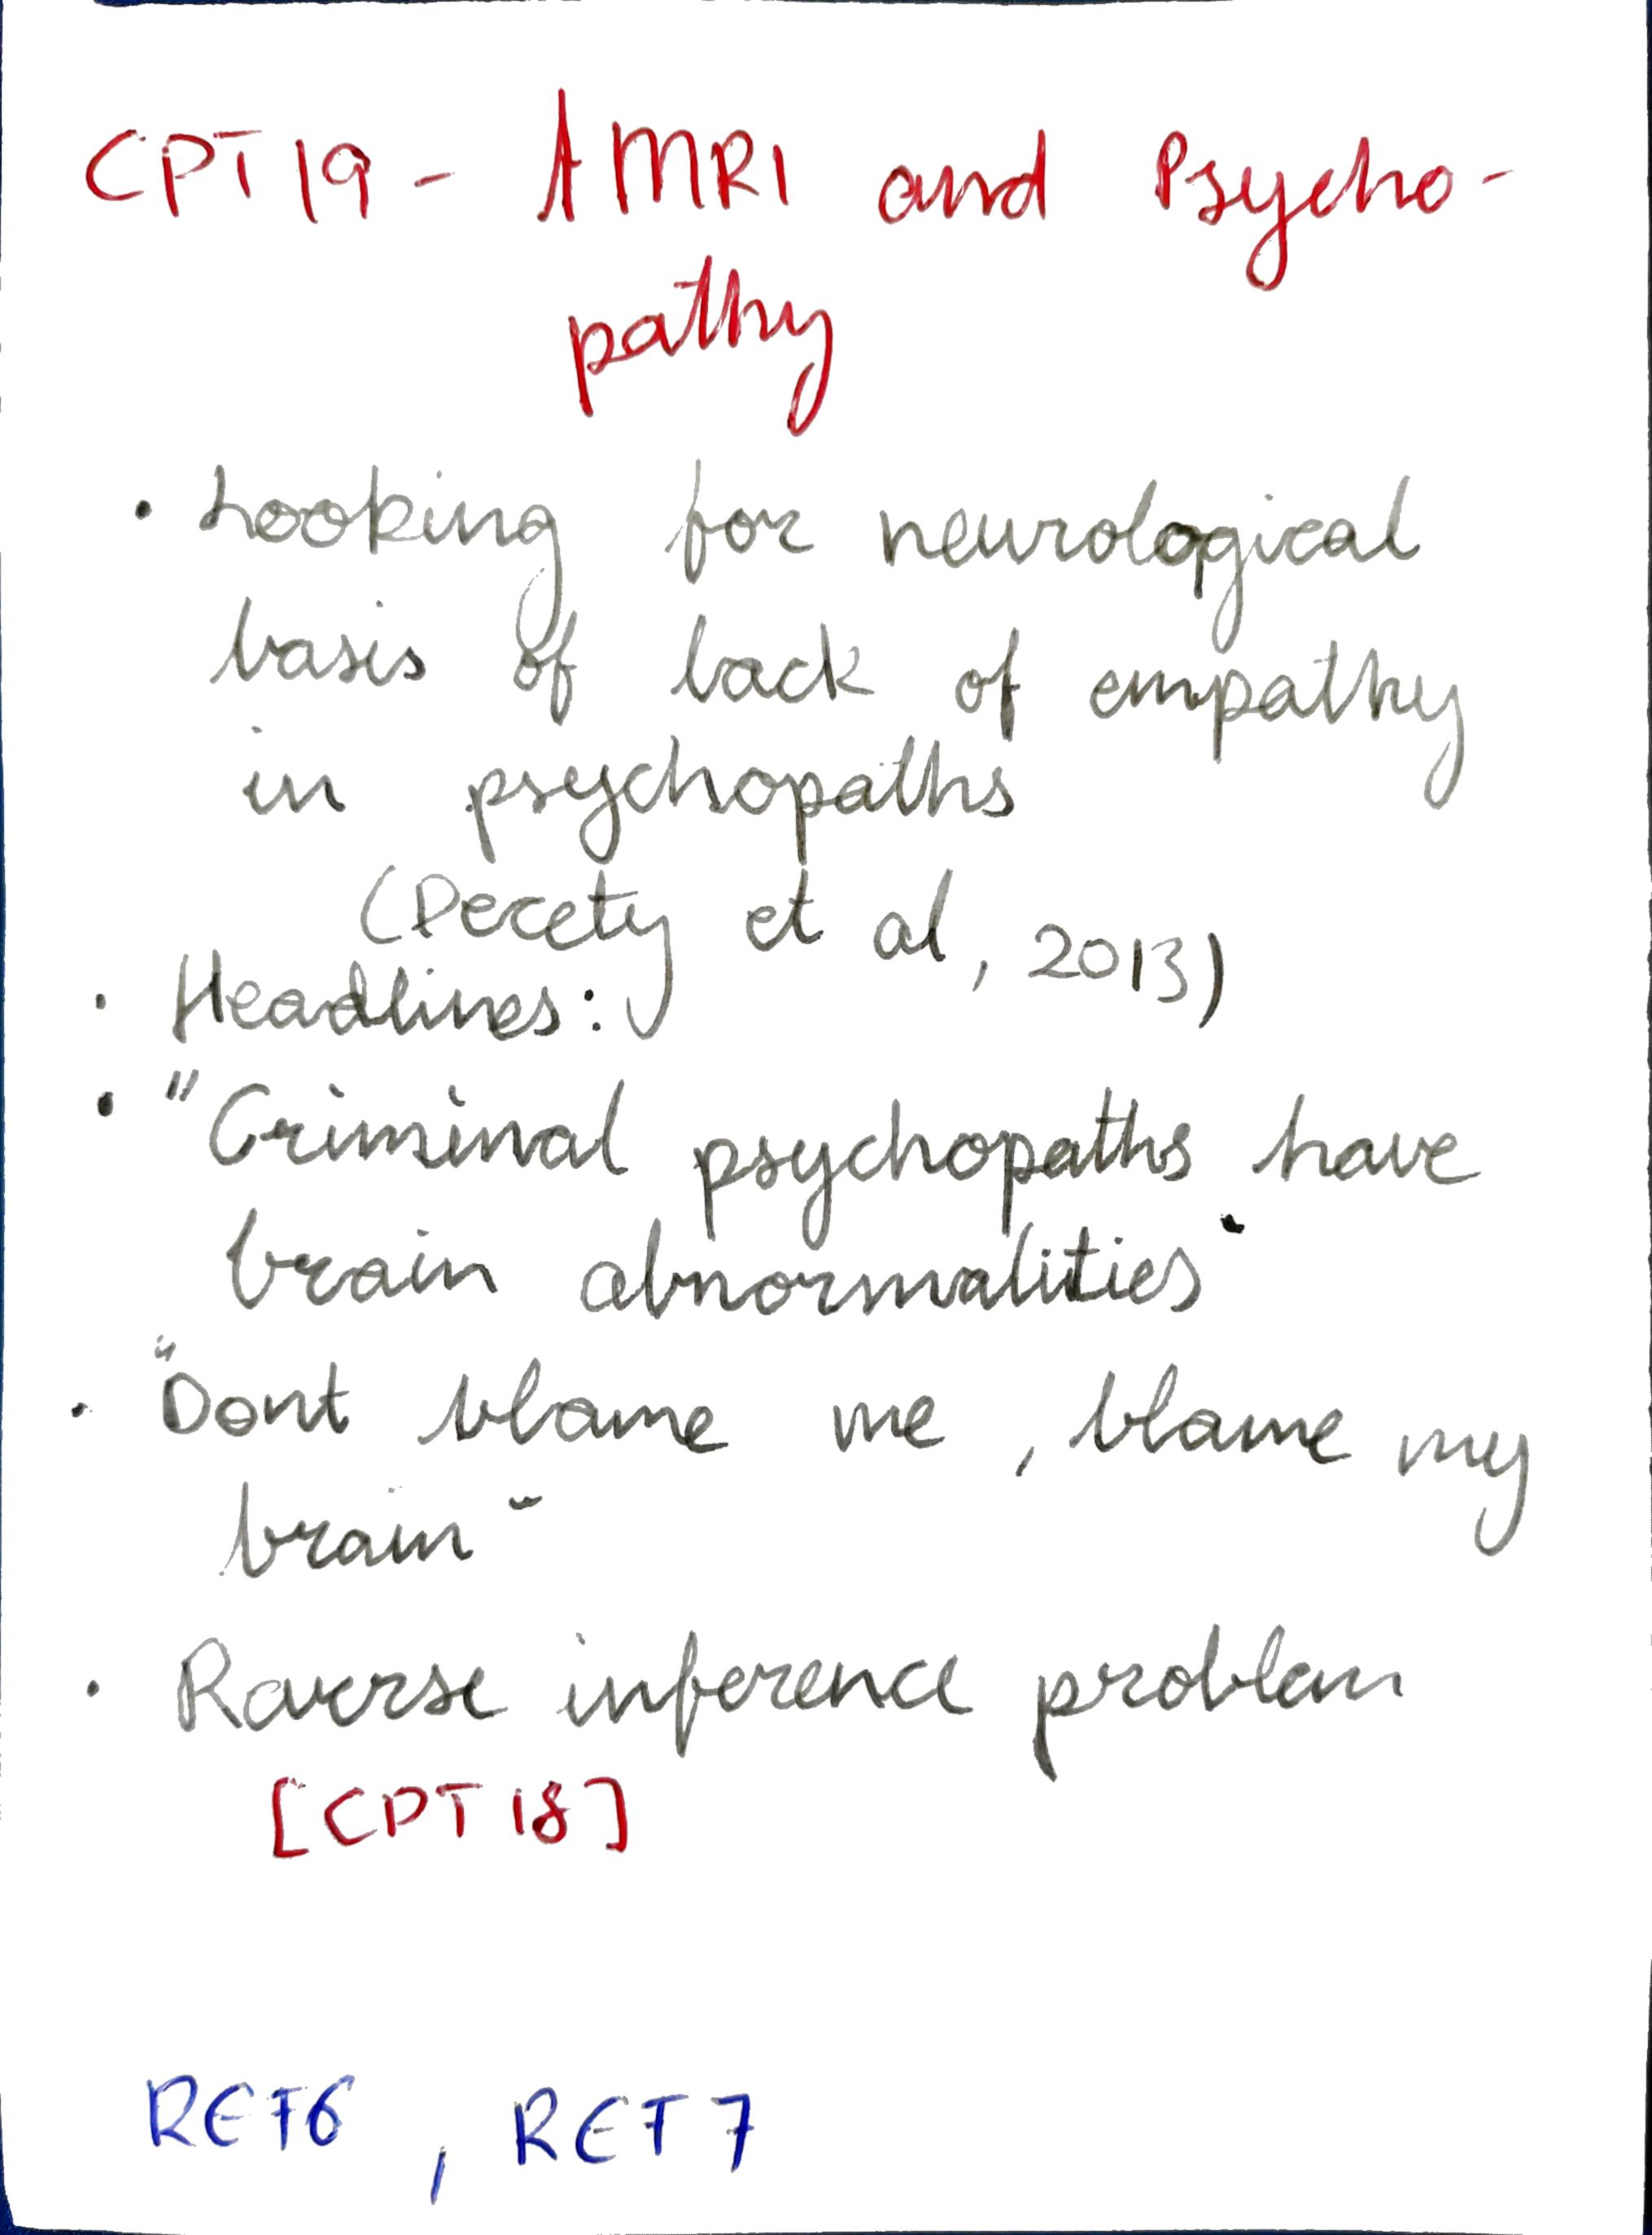 CPT 19 - fMRI and Psycho-
pathy
• Looking for neurological
basis of lack of empathy
in psychopaths
(Decety et al, 2013)
• Headlines:
• "Criminal psychopaths have
brain abnormalities"
• "Dont blame me, blame my
brain"
• Reverse inference problem
[CPT 18]
REF6, REF7